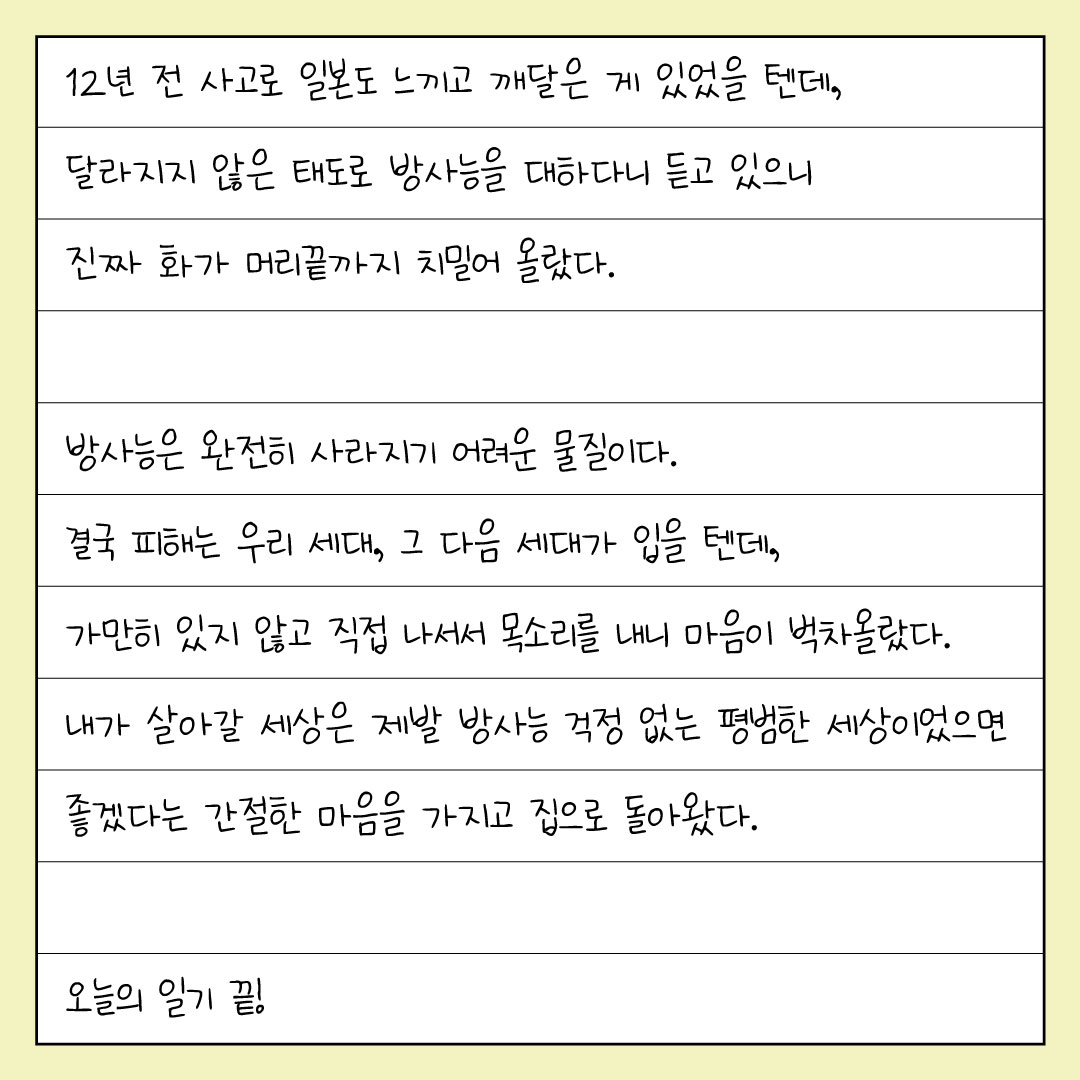 12년 전 사고로 일본도 느끼고 깨달은 게 있었을 텐데,
달라지지 않은 태도로 방사능을 대하다니 듣고 있으니
진짜 화가 머리끝까지 치밀어 올랐다.
방사능은 완전히 사라지기 어려운 물질이다.
결국 피해는 우리 세대, 그 다음 세대가 입을 텐데,
가만히 있지 않고 직접 나서서 목소리를 내니 마음이 벅차올랐다.
내가 살아갈 세상은 제발 방사능 걱정 없는 평범한 세상이었으면
좋겠다는 간절한 마음을 가지고 집으로 돌아왔다.
오늘의 일기 끝!